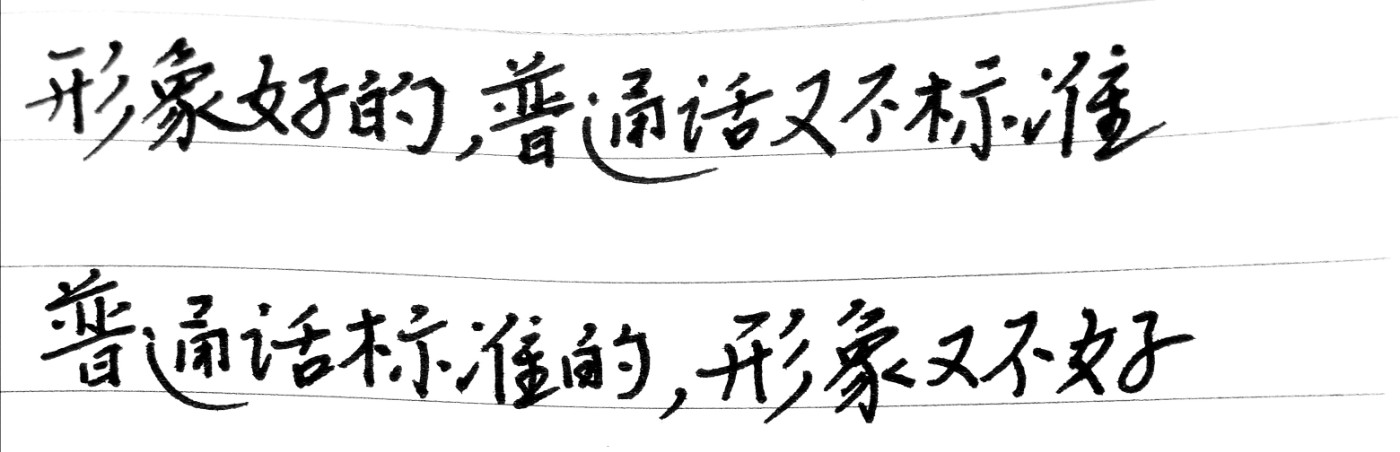 形象好的,普通话又不标准
普通话标准的,形象又不好